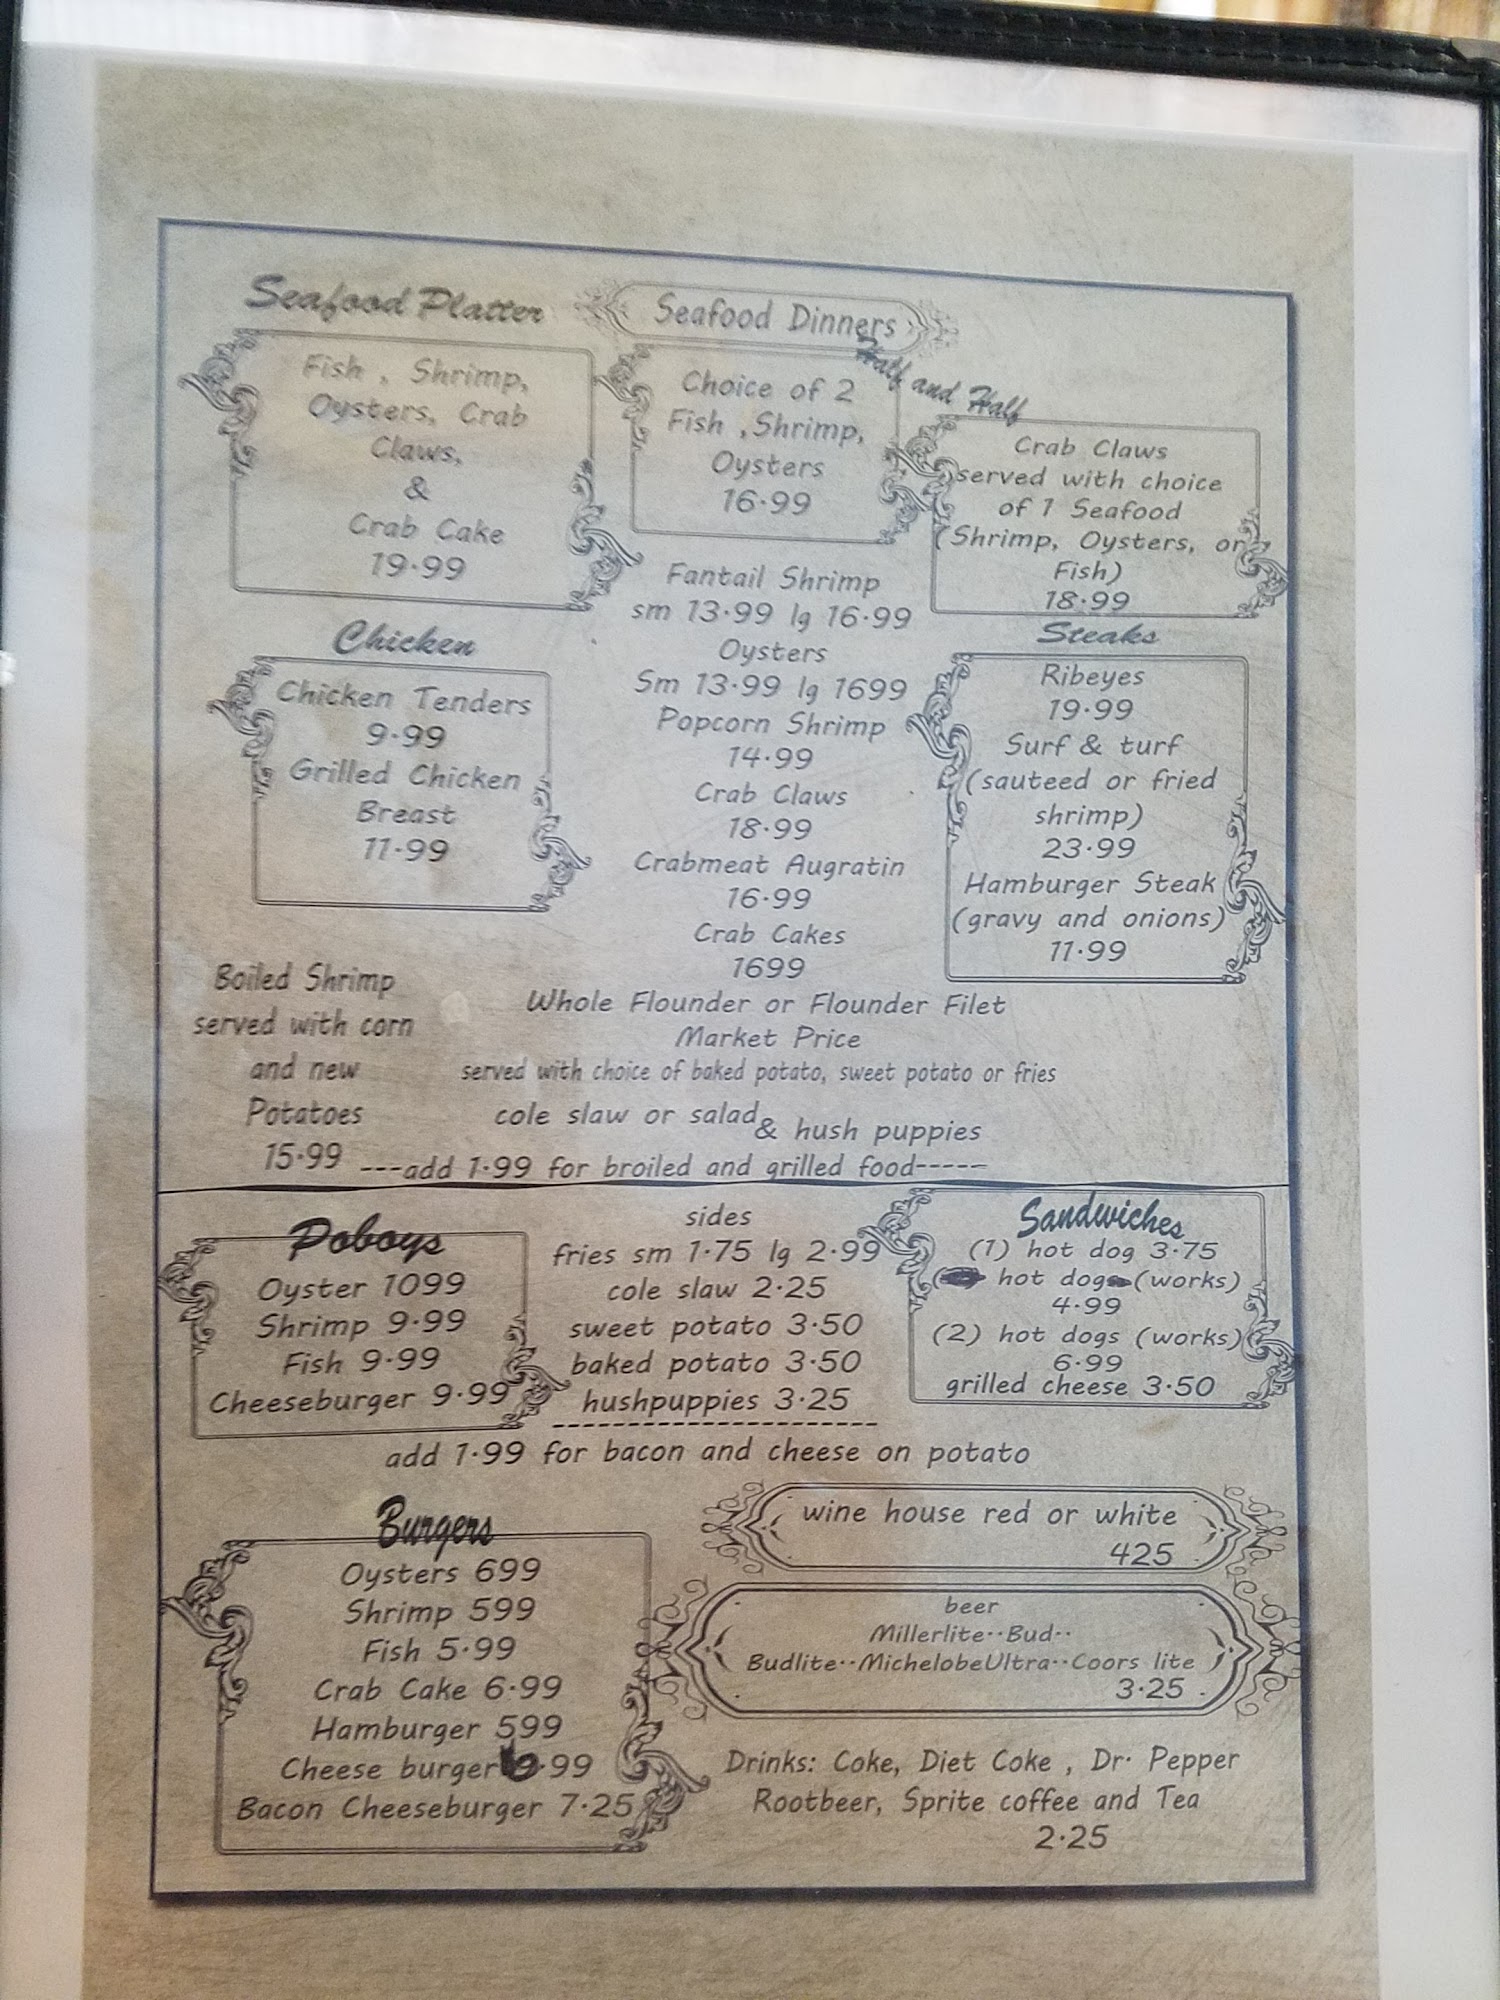 Seafood Platter
Fish , Shrimp,
Oysters, Crab
Claws,
&
Crab Cake
19.99
Seafood Dinners
Half and Half
Choice of 2
Fish ,Shrimp,
Oysters
16.99
Crab Claws
served with choice
of 1 Seafood
(Shrimp, Oysters, or
Fish)
18.99
Chicken
Chicken Tenders
9.99
Grilled Chicken
Breast
11.99
Fantail Shrimp
sm 13.99 lg 16.99
Oysters
Sm 13.99 lg 1699
Popcorn Shrimp
14.99
Crab Claws
18.99
Crabmeat Augratin
16.99
Crab Cakes
1699
Whole Flounder or Flounder Filet
Market Price
served with choice of baked potato, sweet potato or fries
cole slaw or salad & hush puppies
---add 1.99 for broiled and grilled food-----
Steaks
Ribeyes
19.99
Surf & turf
(sauteed or fried
shrimp)
23.99
Hamburger Steak
(gravy and onions)
11.99
Boiled Shrimp
served with corn
and new
Potatoes
15.99
Poboys
Oyster 1099
Shrimp 9.99
Fish 9.99
Cheeseburger 9.99
sides
fries sm 1.75 lg 2.99
cole slaw 2.25
sweet potato 3.50
baked potato 3.50
hushpuppies 3.25
--------------------
add 1.99 for bacon and cheese on potato
Sandwiches
(1) hot dog 3.75
hot dog (works)
4.99
(2) hot dogs (works)
6.99
grilled cheese 3.50
Burgers
Oysters 699
Shrimp 599
Fish 5.99
Crab Cake 6.99
Hamburger 599
Cheese burger 6.99
Bacon Cheeseburger 7.25
wine house red or white
425
beer
Millerlite..Bud..
Budlite..MichelobeUltra..Coors lite
3.25
Drinks: Coke, Diet Coke , Dr. Pepper
Rootbeer, Sprite coffee and Tea
2.25